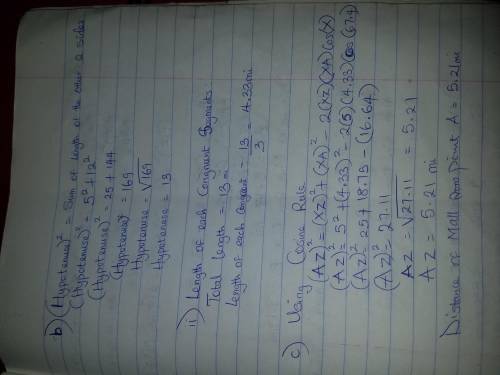 b) (Hypotenuse)² = Sum of length of the other 2 sides
(Hypotenuse)² = 5² + 12²
(Hypotenuse)² = 25 + 144
(Hypotenuse)² = 169
Hypotenuse = √169
Hypotenuse = 13
ii) Length of each Congruent Segments
Total length = 13 m
Length of each congruent = 13/3 = 4.33mi
c) Using Cosine Rule
(AZ)² = (XZ)² + (XA)² - 2(XZ)(XA) Cos(X)
(AZ)² = 5² + (4.33)² - 2(5)(4.33)Cos(67.4)
(AZ)² = 25 + 18.75 - (16.64)
(AZ)² = 27.11
AZ = √27.11 = 5.21
AZ = 5.21 mi
Distance of Mall from point A = 5.21mi